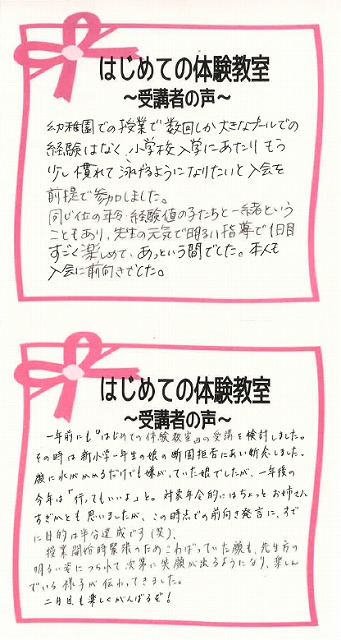 はじめての体験教室
～受講者の声～
幼稚園での授業で数回しか大きなプールでの
経験はなく、小学校入学にあたり もう
少し慣れて 泳げるようになりたいと入会を
前提で参加しました。
同じ位の年令・経験値の子たちと一緒という
こともあり、先生の元気で明るい指導で1日目
すごく楽しめて、あっという間でした。本人も
入会に前向きでした。
はじめての体験教室
～受講者の声～
一年前にも『はじめての体験教室』の受講を検討しました。
その時は新小学一年生の娘の断固拒否にあい断念しました。
顔に水がかかるだけでも嫌がっていた娘でしたが、一年後の
今年は「行ってもいいよ」と。対象年令的にはちょっとお姉さん
すぎかとも思いましたが、この時点での前向き発言に、すで
に目的は半分達成です(笑)、
授業開始時緊張のためこわばっていた顔も、先生方の
明るい姿につられて次第に笑顔が出るようになり、楽しん
でいる様子が伝わってきました。
二日目も楽しくがんばるぞ!